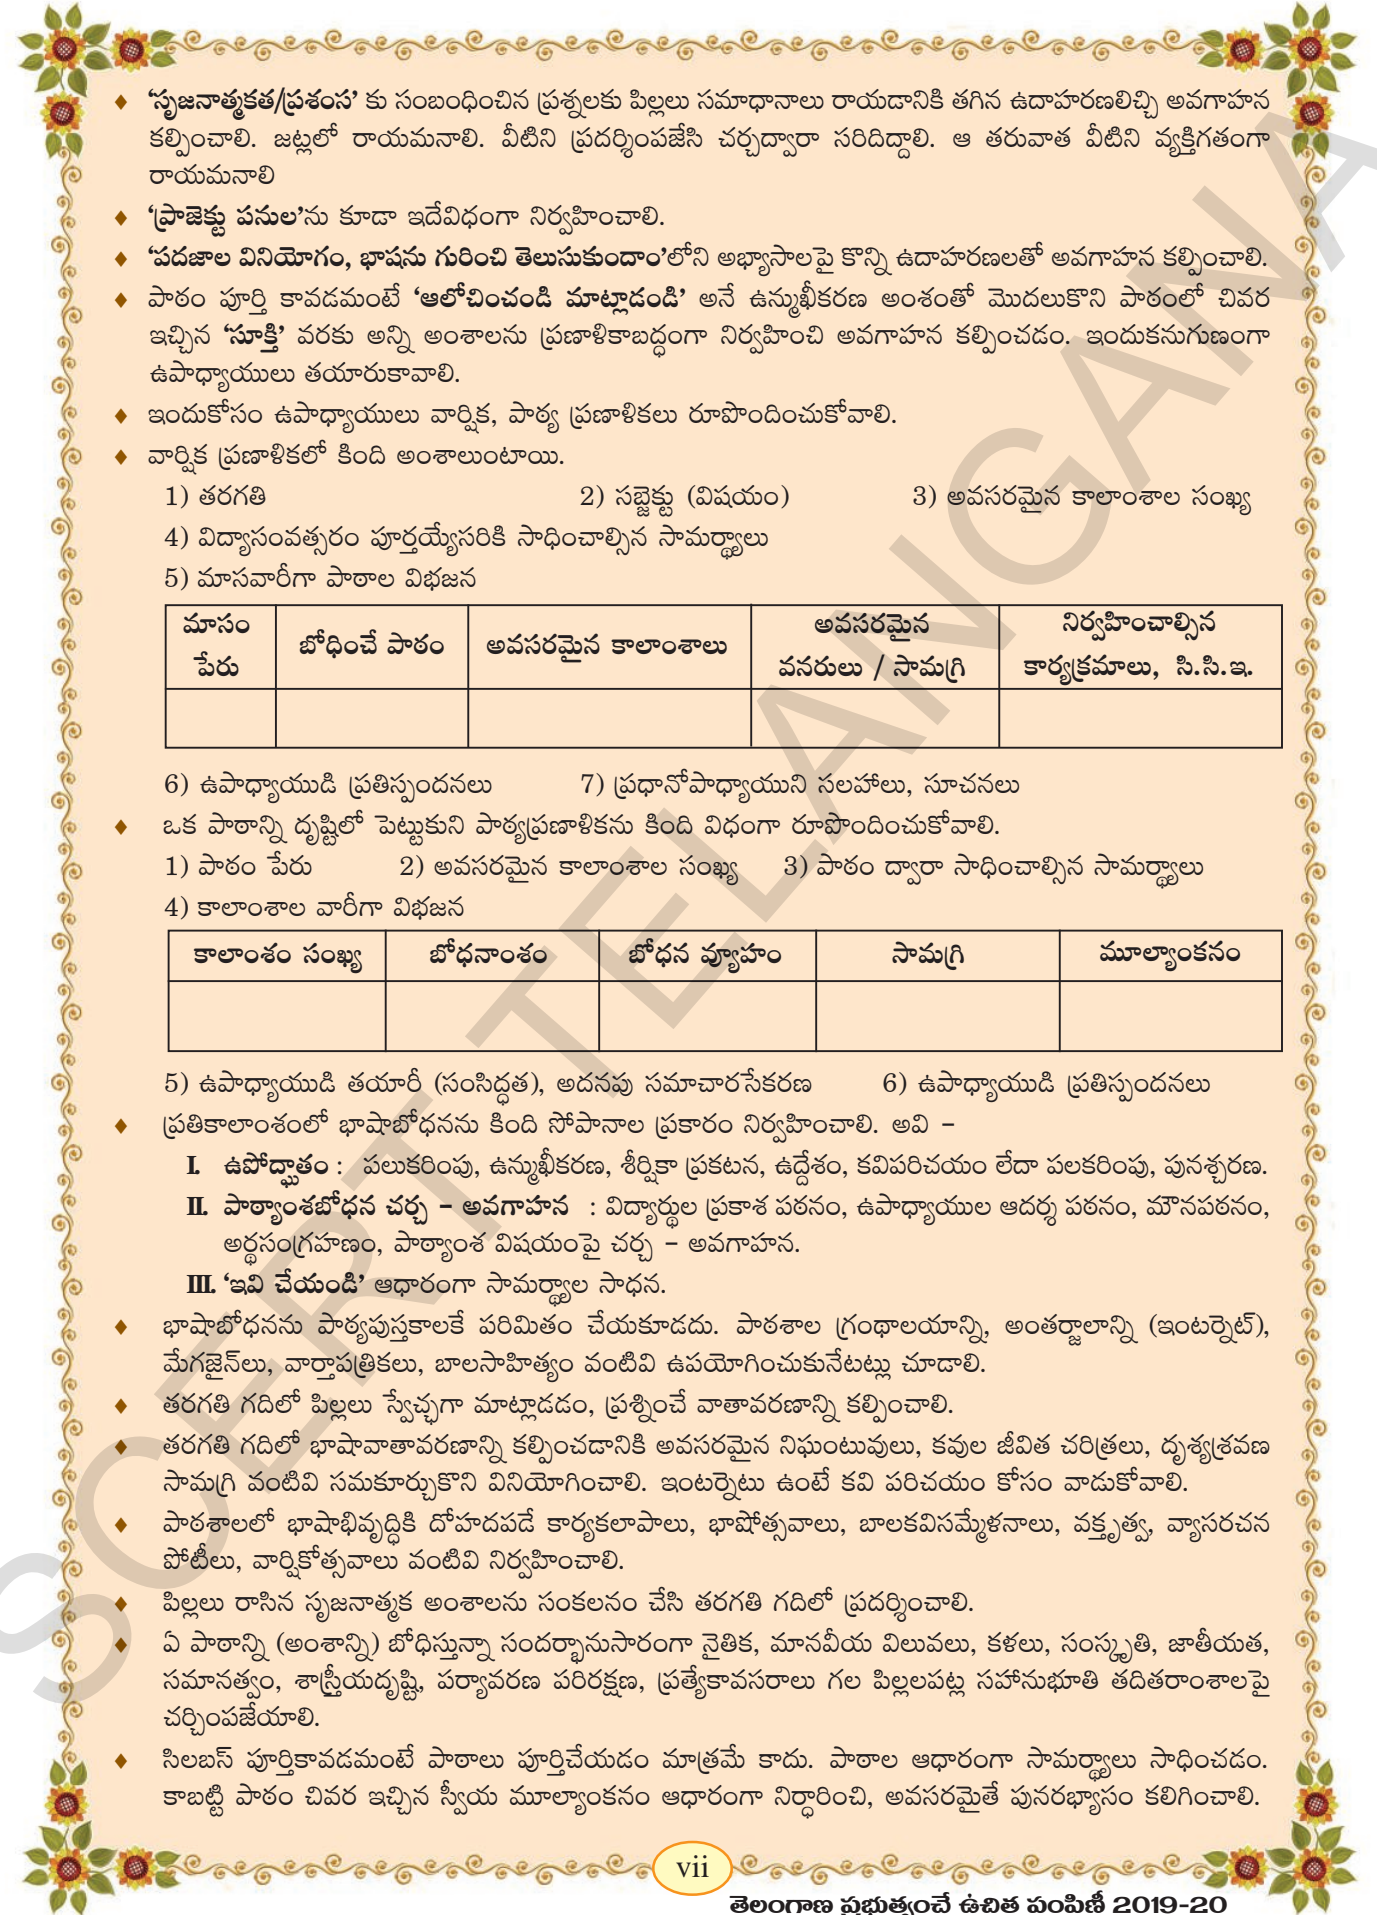 ♦ ‘సృజనాత్మకత/ప్రశంస’ కు సంబంధించిన ప్రశ్నలకు పిల్లలు సమాధానాలు రాయడానికి తగిన ఉదాహరణలిచ్చి అవగాహన
కల్పించాలి. జట్లలో రాయమనాలి. వీటిని ప్రదర్శింపజేసి చర్చద్వారా సరిదిద్దాలి. ఆ తరువాత వీటిని వ్యక్తిగతంగా
రాయమనాలి
♦ ‘ప్రాజెక్టు పనుల’ను కూడా ఇదేవిధంగా నిర్వహించాలి.
♦ ‘పదజాల వినియోగం, భాషను గురించి తెలుసుకుందాం’లోని అభ్యాసాలపై కొన్ని ఉదాహరణలతో అవగాహన కల్పించాలి.
♦ పాఠం పూర్తి కావడమంటే ‘ఆలోచించండి మాట్లాడండి’ అనే ఉన్ముఖీకరణ అంశంతో మొదలుకొని పాఠంలో చివర
ఇచ్చిన ‘సూక్తి’ వరకు అన్ని అంశాలను ప్రణాళికాబద్ధంగా నిర్వహించి అవగాహన కల్పించడం. ఇందుకనుగుణంగా
ఉపాధ్యాయులు తయారుకావాలి.
♦ ఇందుకోసం ఉపాధ్యాయులు వార్షిక, పాఠ్య ప్రణాళికలు రూపొందించుకోవాలి.
♦ వార్షిక ప్రణాళికలో కింది అంశాలుంటాయి.
1) తరగతి 2) సబ్జెక్టు (విషయం) 3) అవసరమైన కాలాంశాల సంఖ్య
4) విద్యాసంవత్సరం పూర్తయ్యేసరికి సాధించాల్సిన సామర్థ్యాలు
5) మాసవారీగా పాఠాల విభజన
మాసం పేరు | బోధించే పాఠం | అవసరమైన కాలాంశాలు | అవసరమైన వనరులు / సామగ్రి | నిర్వహించాల్సిన కార్యక్రమాలు, సి.సి.ఇ.
6) ఉపాధ్యాయుడి ప్రతిస్పందనలు 7) ప్రధానోపాధ్యాయుని సలహాలు, సూచనలు
♦ ఒక పాఠాన్ని దృష్టిలో పెట్టుకుని పాఠ్యప్రణాళికను కింది విధంగా రూపొందించుకోవాలి.
1) పాఠం పేరు 2) అవసరమైన కాలాంశాల సంఖ్య 3) పాఠం ద్వారా సాధించాల్సిన సామర్థ్యాలు
4) కాలాంశాల వారీగా విభజన
కాలాంశం సంఖ్య | బోధనాంశం | బోధన వ్యూహం | సామగ్రి | మూల్యాంకనం
5) ఉపాధ్యాయుడి తయారీ (సంసిద్ధత), అదనపు సమాచారసేకరణ 6) ఉపాధ్యాయుడి ప్రతిస్పందనలు
♦ ప్రతికాలాంశంలో భాషాబోధనను కింది సోపానాల ప్రకారం నిర్వహించాలి. అవి –
I. ఉపోద్ఘాతం : పలుకరింపు, ఉన్ముఖీకరణ, శీర్షికా ప్రకటన, ఉద్దేశం, కవిపరిచయం లేదా పలకరింపు, పునశ్చరణ.
II. పాఠ్యాంశబోధన చర్చ – అవగాహన : విద్యార్థుల ప్రకాశ పఠనం, ఉపాధ్యాయుల ఆదర్శ పఠనం, మౌనపఠనం,
అర్థసంగ్రహణం, పాఠ్యాంశ విషయంపై చర్చ – అవగాహన.
III. ‘ఇవి చేయండి’ ఆధారంగా సామర్థ్యాల సాధన.
♦ భాషాబోధనను పాఠ్యపుస్తకాలకే పరిమితం చేయకూడదు. పాఠశాల గ్రంథాలయాన్ని, అంతర్జాలాన్ని (ఇంటర్నెట్),
మేగజైన్‌లు, వార్తాపత్రికలు, బాలసాహిత్యం వంటివి ఉపయోగించుకునేటట్లు చూడాలి.
♦ తరగతి గదిలో పిల్లలు స్వేచ్ఛగా మాట్లాడడం, ప్రశ్నించే వాతావరణాన్ని కల్పించాలి.
♦ తరగతి గదిలో భాషావాతావరణాన్ని కల్పించడానికి అవసరమైన నిఘంటువులు, కవుల జీవిత చరిత్రలు, దృశ్యశ్రవణ
సామగ్రి వంటివి సమకూర్చుకొని వినియోగించాలి. ఇంటర్నెటు ఉంటే కవి పరిచయం కోసం వాడుకోవాలి.
♦ పాఠశాలలో భాషాభివృద్ధికి దోహదపడే కార్యకలాపాలు, భాషోత్సవాలు, బాలకవిసమ్మేళనాలు, వక్తృత్వ, వ్యాసరచన
పోటీలు, వార్షికోత్సవాలు వంటివి నిర్వహించాలి.
♦ పిల్లలు రాసిన సృజనాత్మక అంశాలను సంకలనం చేసి తరగతి గదిలో ప్రదర్శించాలి.
♦ ఏ పాఠాన్ని (అంశాన్ని) బోధిస్తున్నా సందర్భానుసారంగా నైతిక, మానవీయ విలువలు, కళలు, సంస్కృతి, జాతీయత,
సమానత్వం, శాస్త్రీయదృష్టి, పర్యావరణ పరిరక్షణ, ప్రత్యేకావసరాలు గల పిల్లలపట్ల సహానుభూతి తదితరాంశాలపై
చర్చింపజేయాలి.
♦ సిలబస్ పూర్తికావడమంటే పాఠాలు పూర్తిచేయడం మాత్రమే కాదు. పాఠాల ఆధారంగా సామర్థ్యాలు సాధించడం.
కాబట్టి పాఠం చివర ఇచ్చిన స్వీయ మూల్యాంకనం ఆధారంగా నిర్ధారించి, అవసరమైతే పునరభ్యాసం కలిగించాలి.
vii
తెలంగాణ ప్రభుత్వంచే ఉచిత పంపిణీ 2019-20
SCERT TELANGANA